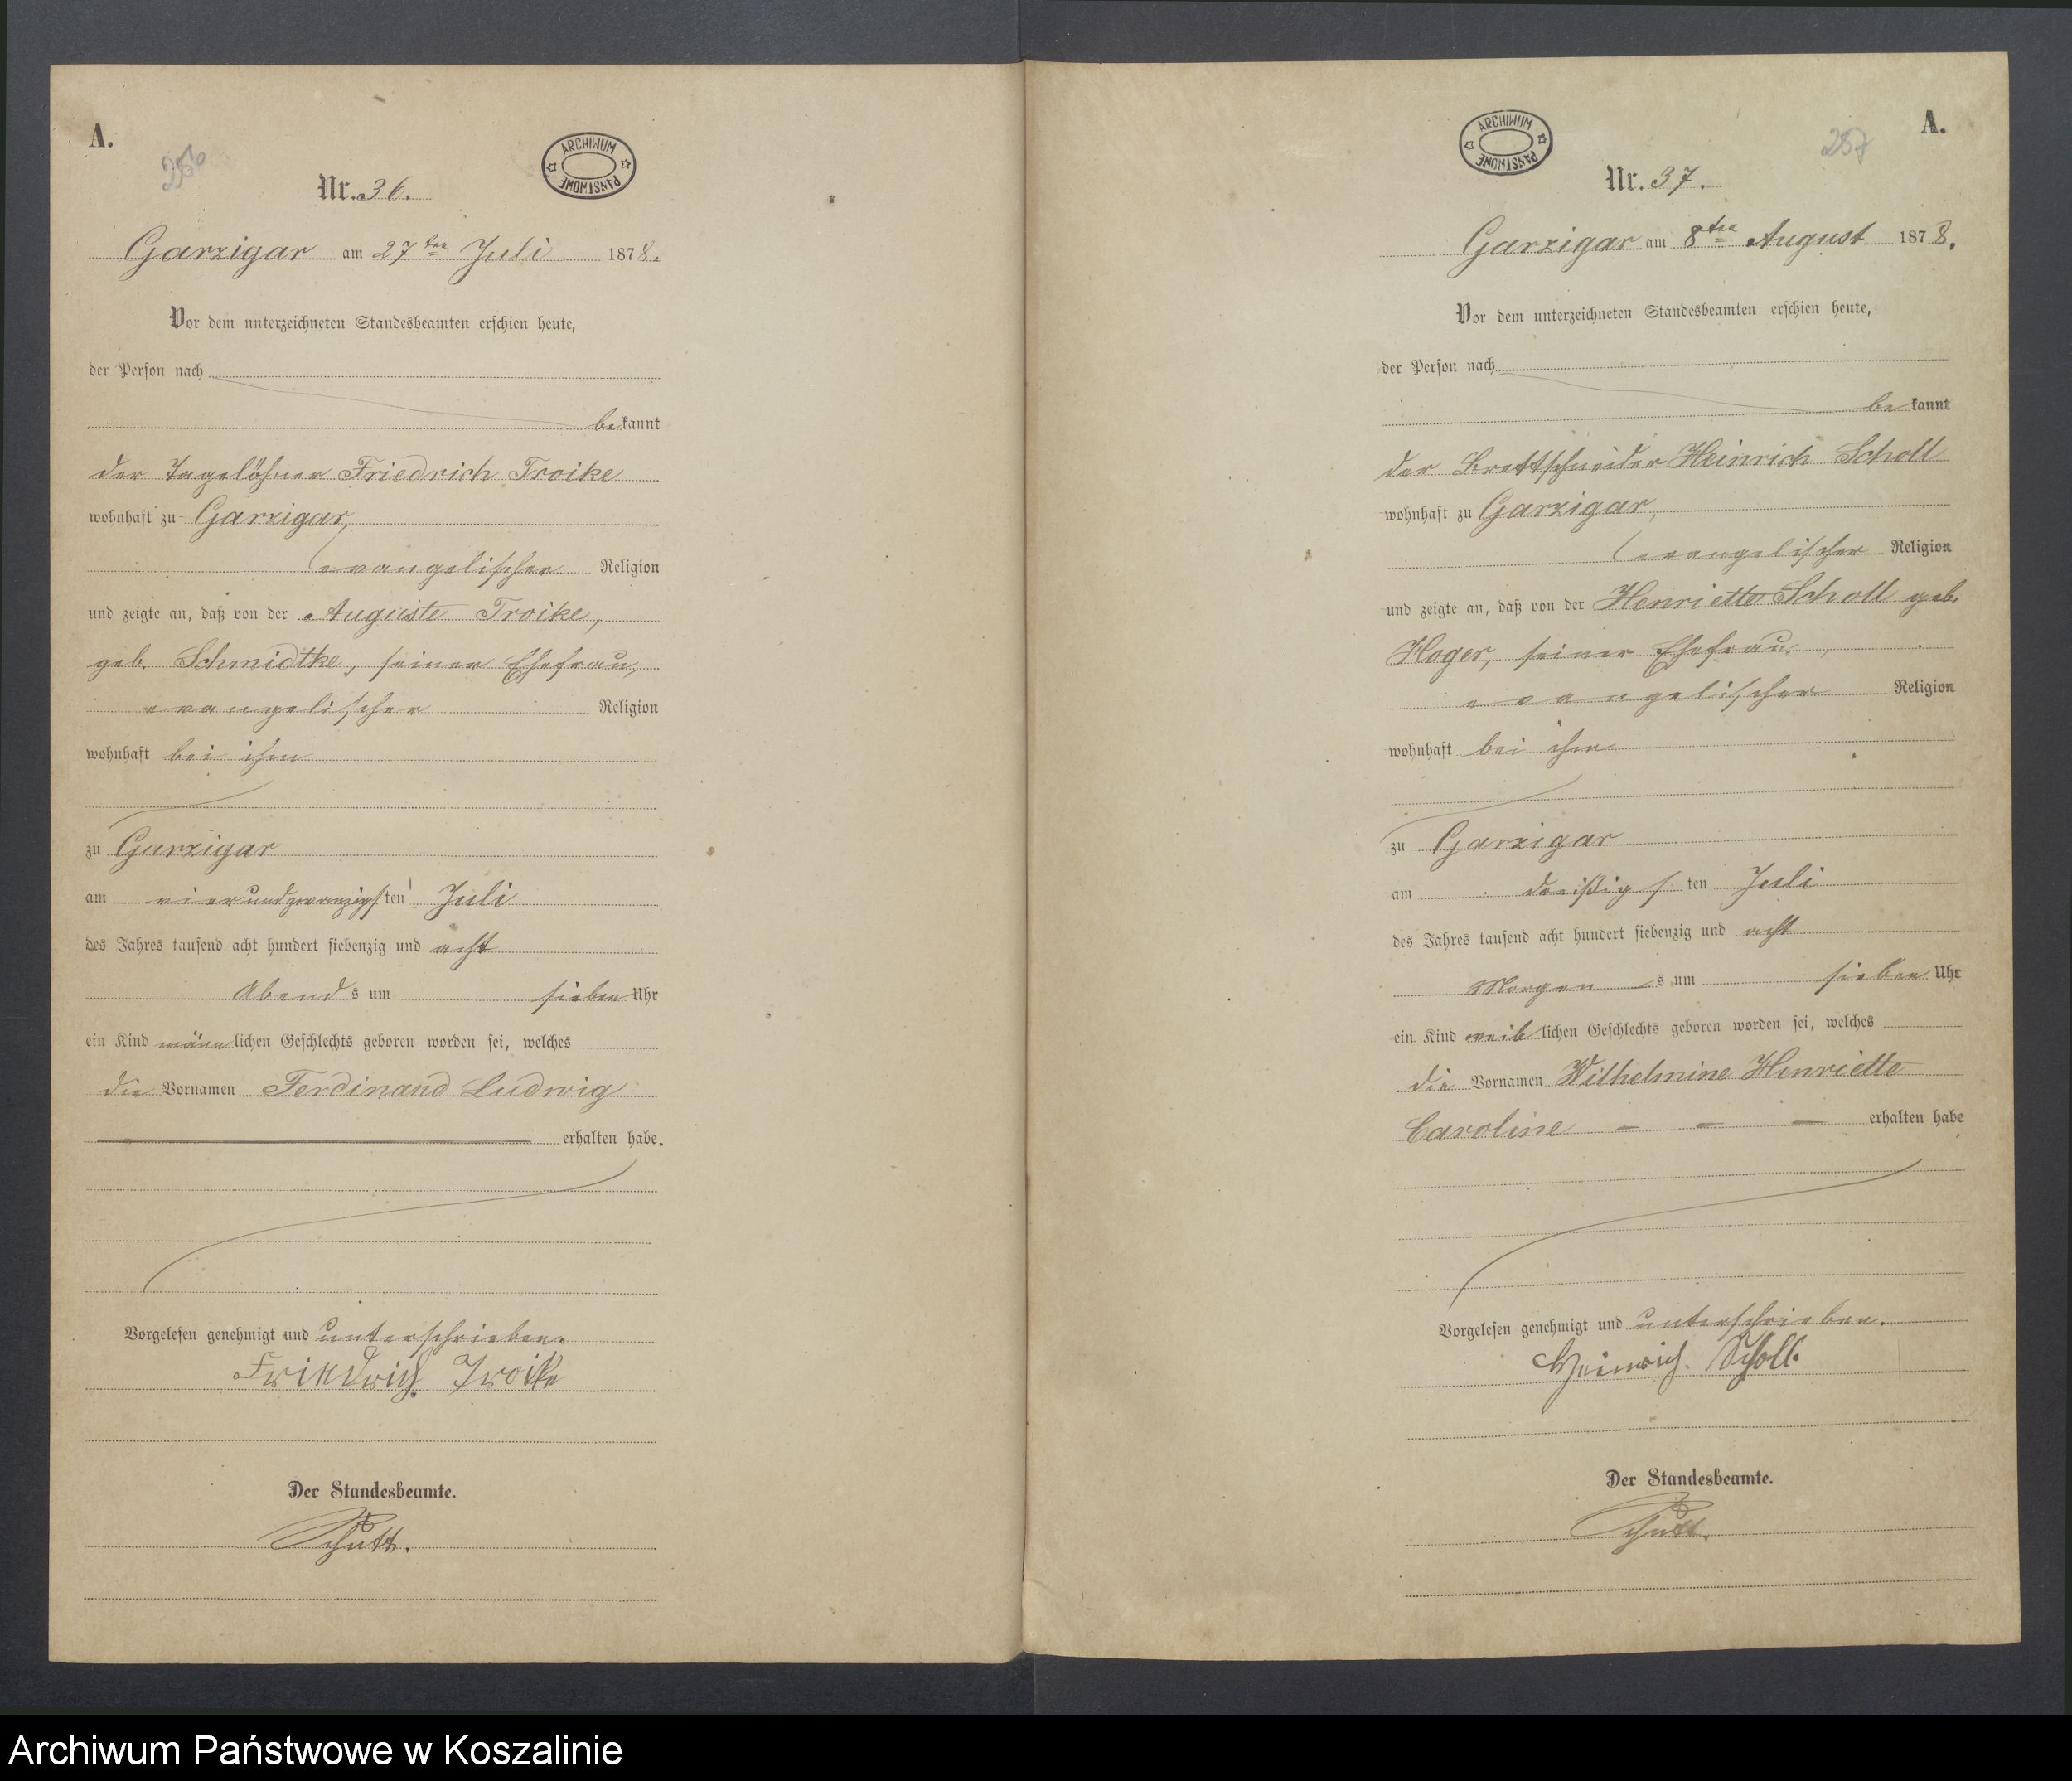 A.
256
Nr. 36.
ARCHIWUM PAŃSTWOWE
Garzigar am 27ten Juli 1878.
Vor dem unterzeichneten Standesbeamten erschien heute,
der Person nach
bekannt
der Tagelöhner Friedrich Troike
wohnhaft zu Garzigar,
evangelischer Religion
und zeigte an, daß von der Auguste Troike,
geb. Schmidtke, seiner Ehefrau,
evangelischer Religion
wohnhaft bei ihm
zu Garzigar
am vierundzwanzigsten Juli
des Jahres tausend acht hundert siebenzig und acht
Abends um sieben Uhr
ein Kind männlichen Geschlechts geboren worden sei, welches
die Vornamen Ferdinand Ludwig
erhalten habe.
Vorgelesen genehmigt und unterschrieben.
Friedrich Troike
Der Standesbeamte.
Schutt.
A.
257
ARCHIWUM PAŃSTWOWE
Nr. 37.
Garzigar am 8ten August 1878.
Vor dem unterzeichneten Standesbeamten erschien heute,
der Person nach
bekannt
der Brettschneider Heinrich Scholl
wohnhaft zu Garzigar,
evangelischer Religion
und zeigte an, daß von der Henriette Scholl geb.
Hoger, seiner Ehefrau
evangelischer Religion
wohnhaft bei ihm
zu Garzigar
am dreißigsten Juli
des Jahres tausend acht hundert siebenzig und acht
Morgens um sieben Uhr
ein Kind weiblichen Geschlechts geboren worden sei, welches
die Vornamen Wilhelmine Henriette
Caroline - - - erhalten habe
Vorgelesen genehmigt und unterschrieben.
Heinrich Scholl.
Der Standesbeamte.
Schutt.
Archiwum Państwowe w Koszalinie